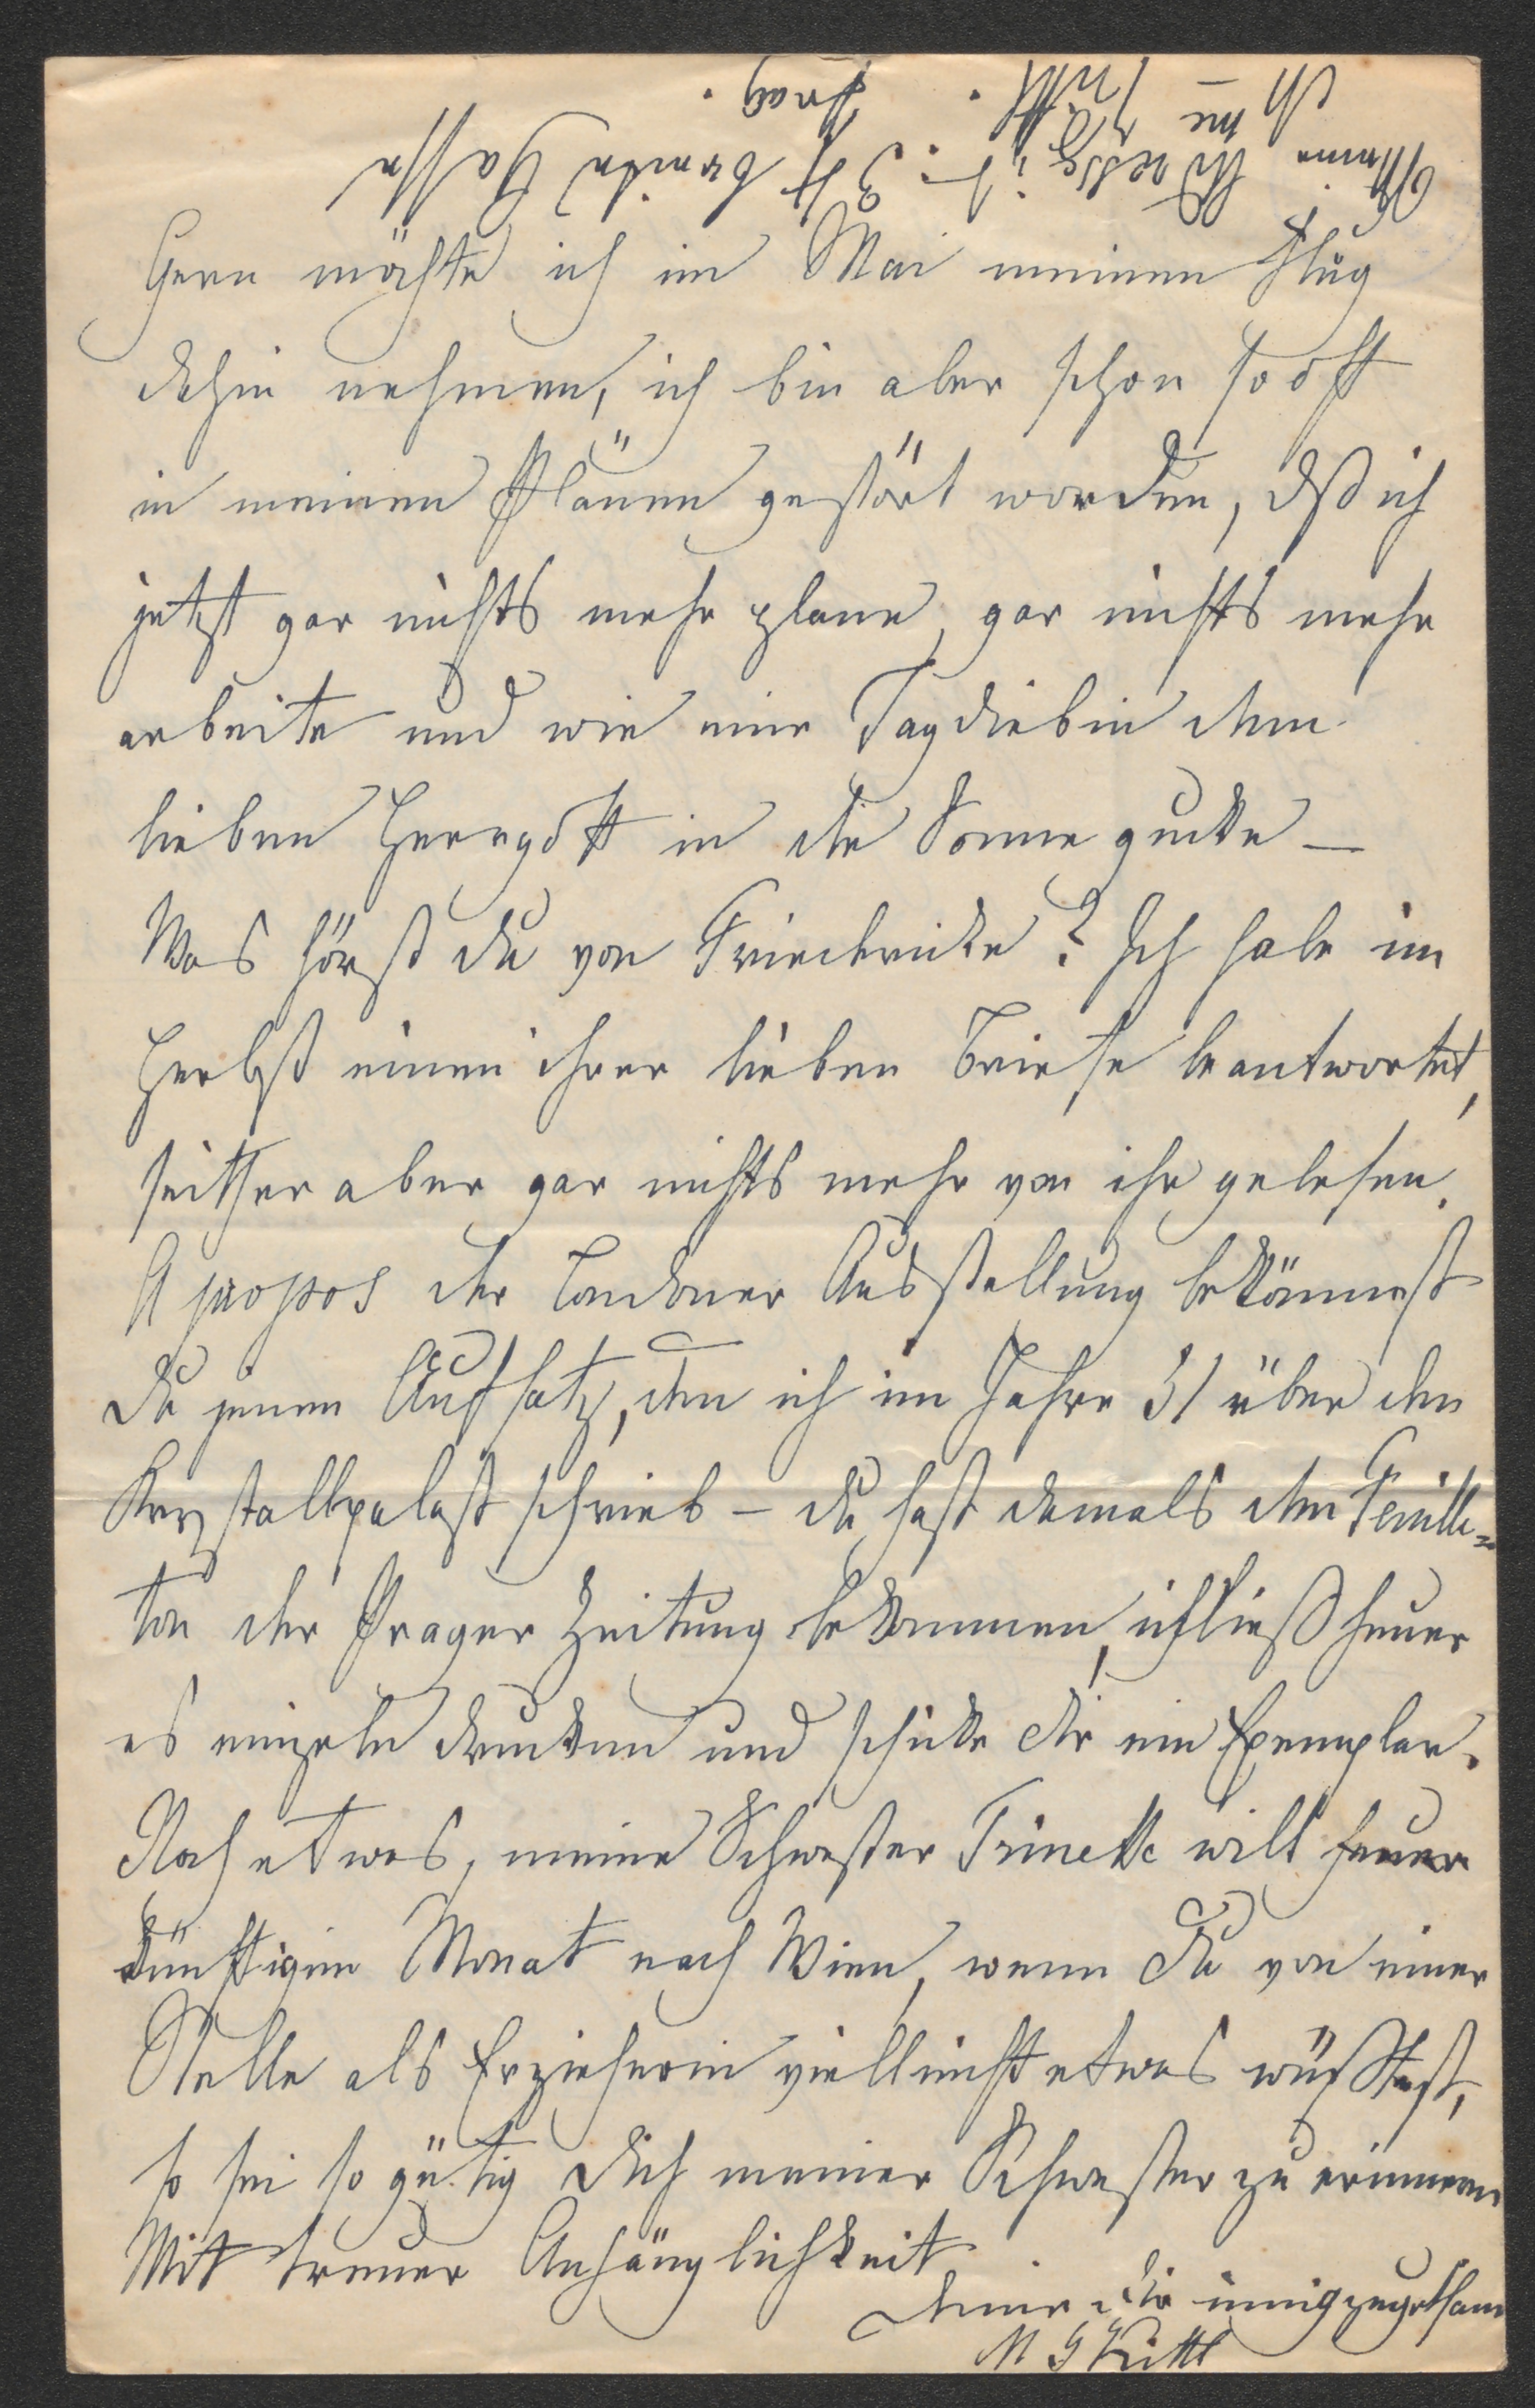 Meine Adresse ist: 3 H breite Gasse
Neu
Prag.
Gern möchte ich im Mai meinen Flug
dahin nehmen, ich bin aber schon so oft
in meinen Plänen gestört worden, dß ich
jetzt gar nichts mehr plane, gar nichts mehr
arbeite und wie eine Tagdiebin dem
lieben Herrgott in die Sonne gucke –
Was hörst du von Friedericke? Ich habe im
Herbst einen ihrer lieben Briefe beantwortet,
seither aber gar nichts mehr von ihr gelesen.
A propos der Londoner Ausstellung bekömmst
Du jenen Aufsatz, den ich im Jahre 51 über den
Krystallpalast schrieb – du hast damals den Feuille=
ton der Prager Zeitung bekommen, ich ließ heuer
es einzeln drucken und schicke dir ein Exemplar.
Noch etwas, meine Schwester Trinette will heuer
künftigen Monat nach Wien, wenn Du von einer
Stelle als Erzieherin vielleicht etwas wüßtest,
so sei so gütig Dich meiner Schwester zu erinnern
Mit treuer Anhänglichkeit
Deine Dir innigzugethane
M G Kittl